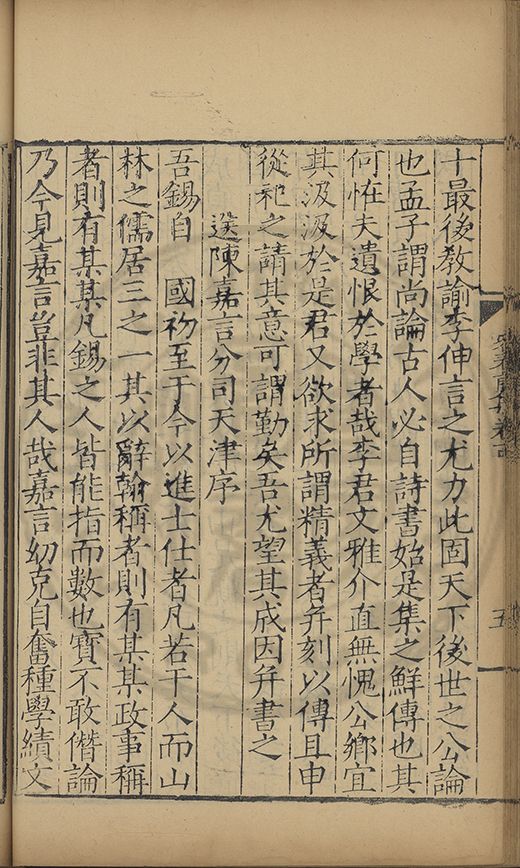 十最後教諭李伸言之尤力此固天下後世之公論
也孟子謂尚論古人必自詩書始是集之鮮傳也其
何恠夫遺恨於學者哉李君文雅介直無愧公鄉宜
其汲汲於是君又欲求所謂精義者并刻以傳且申
從祀之請其意可謂勤矣吾尤望其成因并書之
送陳嘉言分司天津序
吾錫自 國初至于今以進士仕者凡若干人而山
林之儒居三之一其以辭翰稱者則有某某政事稱
者則有某某凡錫之人皆能指而數也寶不敢僭論
乃今見嘉言豈非其人哉嘉言幼克自奮種學績文
五